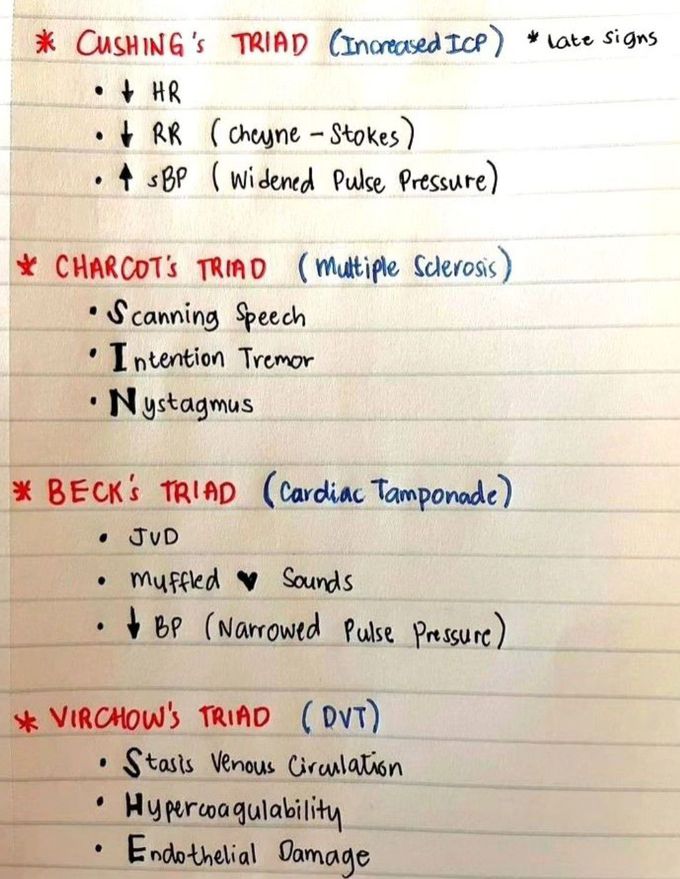 * CUSHING'S TRIAD (Increased ICP) * late signs
• ↓ HR
• ↓ RR (Cheyne - Stokes)
• ↑ sBP (Widened Pulse Pressure)
* CHARCOT'S TRIAD (Multiple Sclerosis)
• Scanning Speech
• Intention Tremor
• Nystagmus
* BECK'S TRIAD (Cardiac Tamponade)
• JVD
• Muffled ♥ Sounds
• ↓ BP (Narrowed Pulse Pressure)
* VIRCHOW'S TRIAD (DVT)
• Stasis Venous Circulation
• Hypercoagulability
• Endothelial Damage